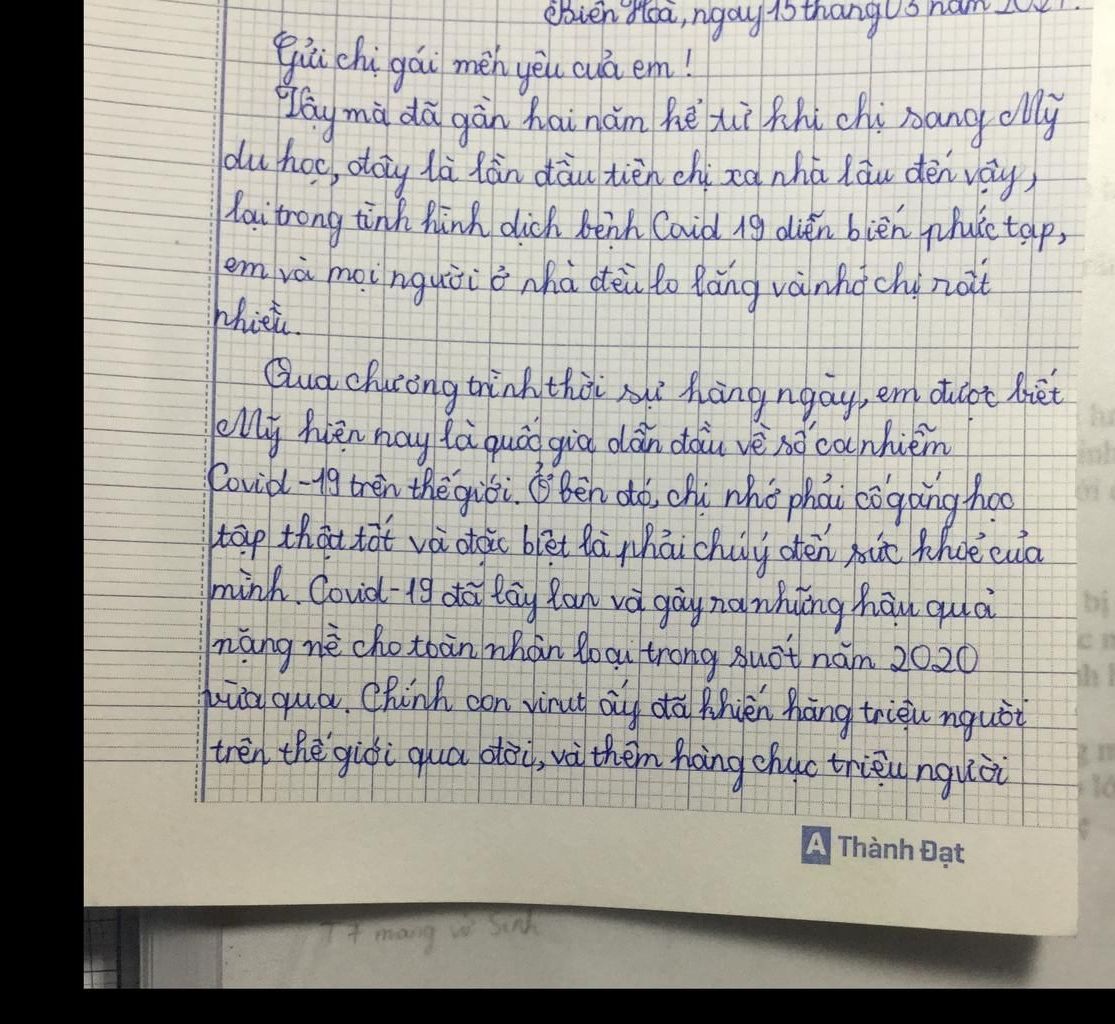 Biên Hoà, ngày 15 tháng 03 năm 2021.
Gửi chị gái mến yêu của em!
Vậy mà đã gần hai năm kể từ khi chị sang Mỹ
du học, đây là lần đầu tiên chị xa nhà lâu đến vậy,
lại trong tình hình dịch bệnh Covid 19 diễn biến phức tạp,
em và mọi người ở nhà đều lo lắng và nhớ chị rất
nhiều.
Qua chương trình thời sự hàng ngày, em được biết
Mỹ hiện nay là quốc gia dẫn đầu về số ca nhiễm
Covid-19 trên thế giới. Ở bên đó, chị nhớ phải cố gắng học
tập thật tốt và đặc biệt là phải chú ý đến sức khoẻ của
mình. Covid-19 đã lây lan và gây ra những hậu quả
nặng nề cho toàn nhân loại trong suốt năm 2020
vừa qua. Chính con virut ấy đã khiến hàng triệu người
trên thế giới qua đời, và thêm hàng chục triệu người
A Thành Đạt
T7 mang vở Sinh